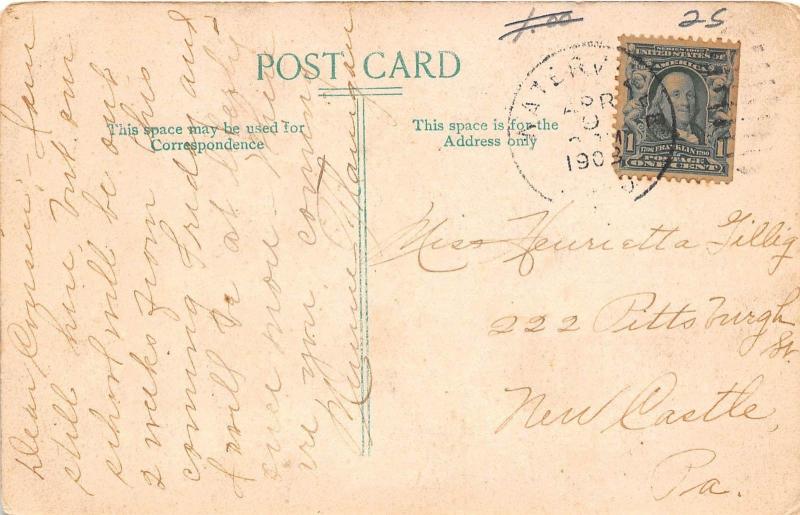 1.00
25
POST CARD
This space may be used for
Correspondence
This space is for the
Address only
WATERV
APR
190
SERIES 1902
UNITED STATES OF
AMERICA
1 1790 FRANKLIN 1790 1
POSTAGE
ONE CENT
Dear Cousin, I am
still here, but our
school will be out
2 weeks from this
coming Friday and
I will be at liberty
once more. When
are you coming
Minnie
Miss Henrietta Gillig
222 Pittsburgh
St.
New Castle,
Pa.